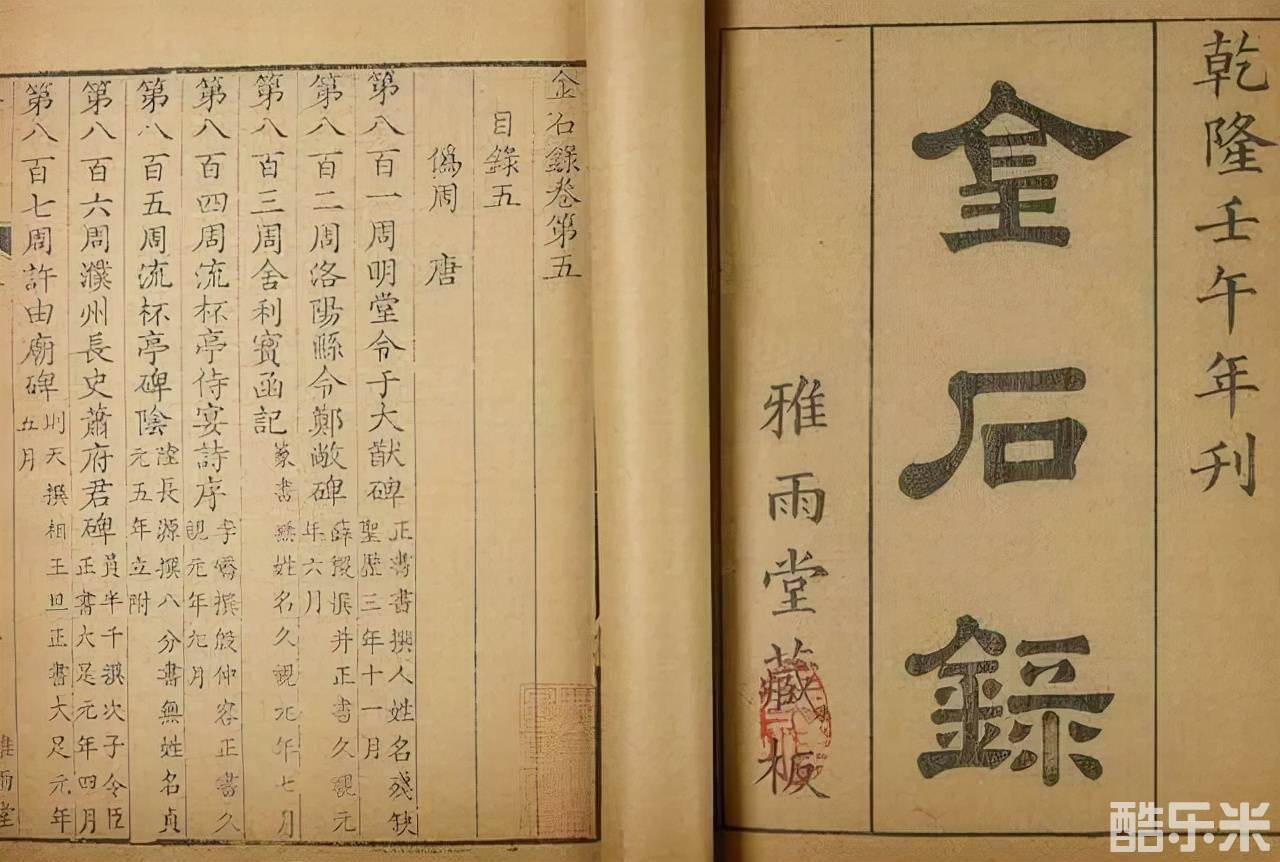 乾隆壬午年刊
金石錄
雅雨堂藏板
金石錄卷第五
目錄五
僞周 唐
第八百一周明堂令于大猷碑 正書書撰人姓名殘缺 聖歷三年十一月
第八百二周洛陽縣令鄭敞碑 薛稷撰并正書久視元 年六月
第八百三周舍利寶函記 篆書無姓名久視元年七月
第八百四周流杯亭侍宴詩序 李嶠撰殷仲容正書久 視元年九月
第八百五周流杯亭碑陰 陸長源撰八分書無姓名貞 元五年立附
第八百六周濮州長史蕭府君碑 員半千撰次子令臣 正書大足元年四月
第八百七周許由廟碑 則天撰相王旦正書大足元年 五月
雅雨堂
酷乐米